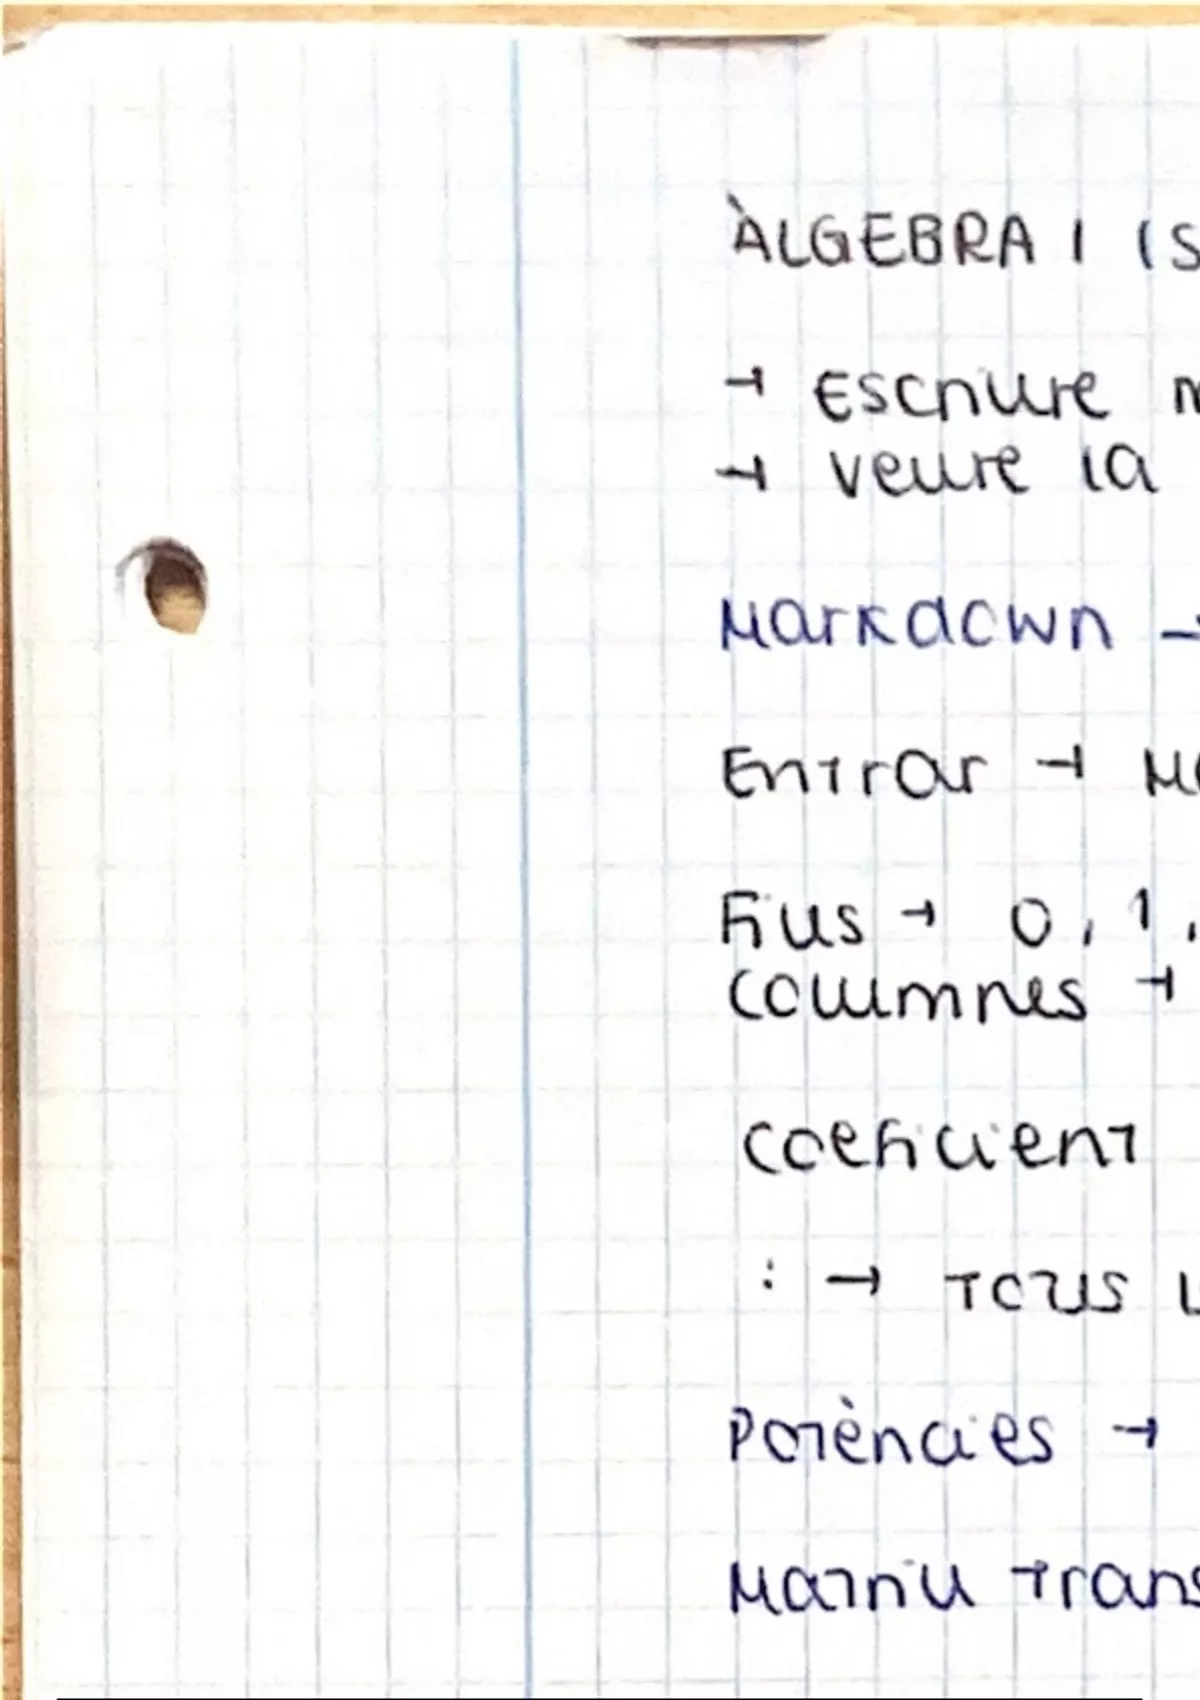 ÀLGEBRA I (S
→ Escriure m
→ veure la
Markdown →
Entrar → Ma
Files → 0, 1,
columnes →
coeficient
: → TOTS l
Potències →
Matriu trans